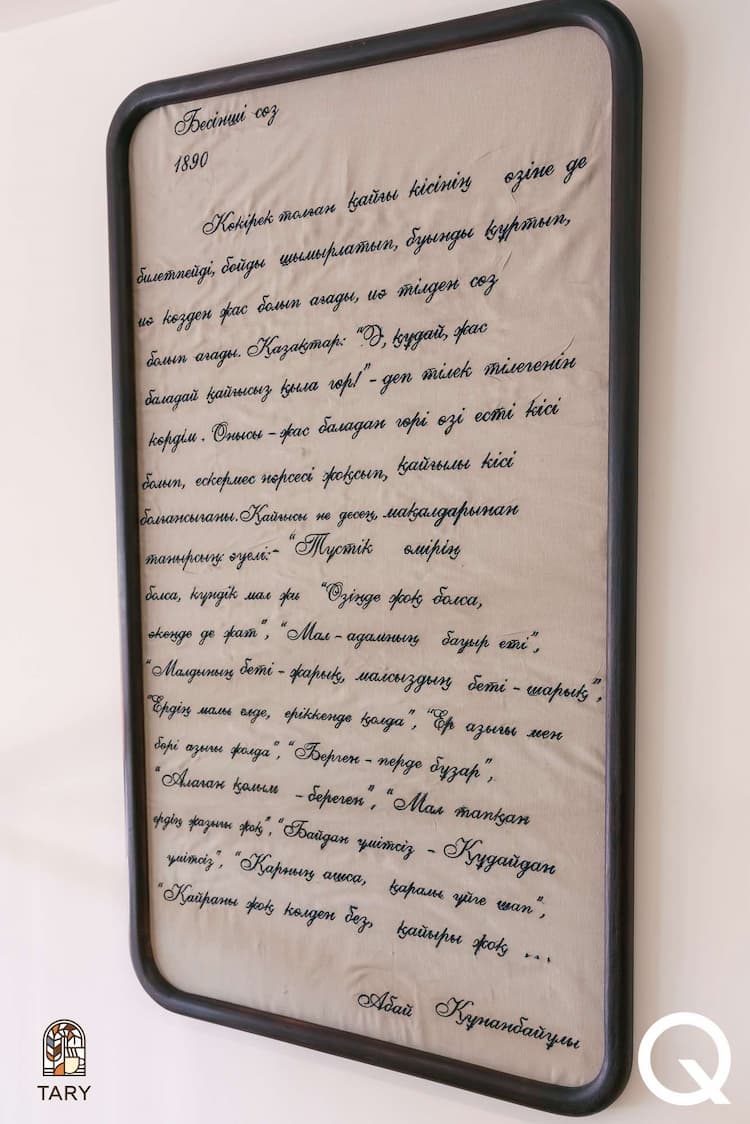 Бесінші сөз
1890
Көкірек толған қайғы кісінің өзіне де
билетпейді, бойды шымырлатып, буынды құртып,
иә көзден жас болып ағады, иә тілден сөз
болып ағады. Қазақтар: "Ә, құдай, жас
баладай қайғысыз қыла гөр!" - деп тілек тілегенін
көрдім. Онысы - жас баладан гөрі өзі есті кісі
болып, ескермес нәрсесі жоқсып, қайғылы кісі
болғансығаны. Қайғысы не десең, мақалдарынан
танырсың: әуелі:- "Түстік өмірің
болса, күндік мал жи "Өзіңде жоқ болса,
әкеңде де жат", "Мал - адамның бауыр еті",
"Малдының беті - жарық, малсыздың беті - шарық",
"Ердің малы елде, еріккенде қолда", "Ер азығы мен
бөрі азығы жолда", "Берген - перде бұзар",
"Алаған қолым - береген", "Мал тапқан
ердің жазығы жоқ", "Байдан үмітсіз - Құдайдан
үмітсіз", "Қарның ашса, қаралы үйге шап",
"Қайраны жоқ көлден без, қайыры жоқ ...
Абай Құнанбайұлы
TARY
Q